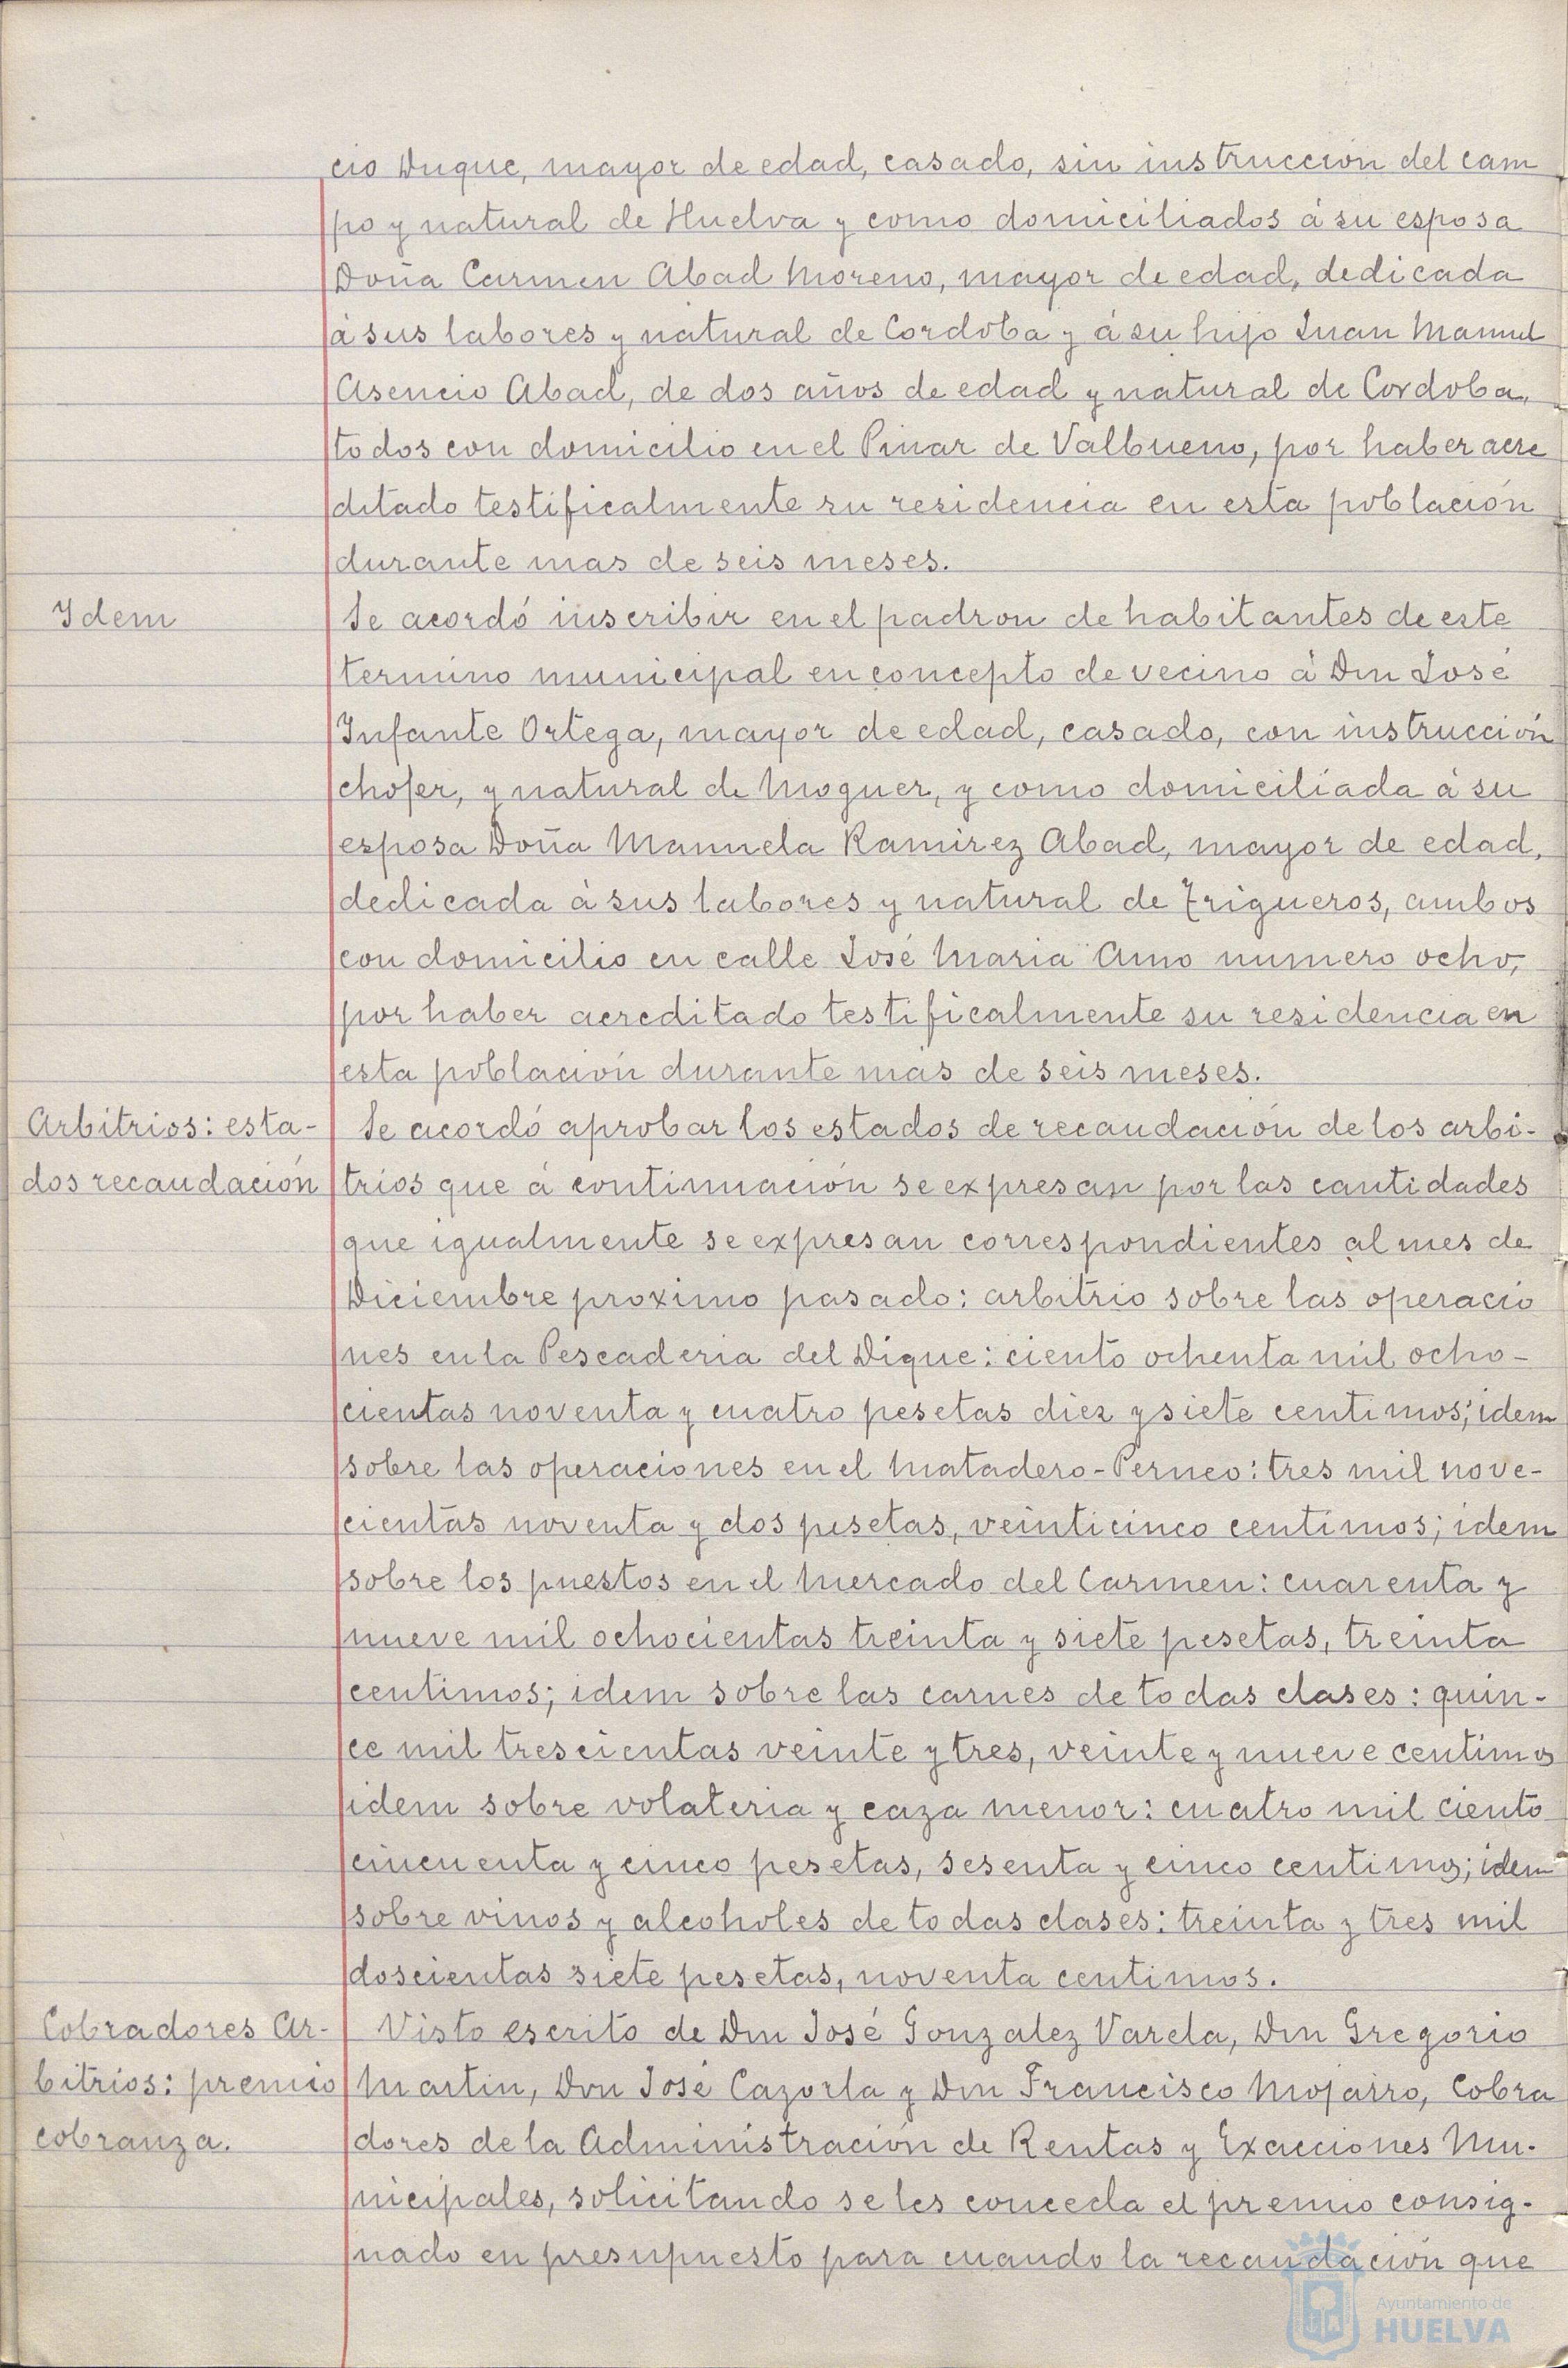 cio Duque, mayor de edad, casado, sin instrucción del cam
po y natural de Huelva y como domiciliados á su esposa
Doña Carmen Abad Moreno, mayor de edad, dedicada
á sus labores y natural de Cordoba y á su hijo Juan Manuel
Asencio Abad, de dos años de edad y natural de Cordoba,
todos con domicilio en el Pinar de Valbueno, por haber acre
ditado testificalmente su residencia en esta población
durante mas de seis meses.
Ydem
Se acordó inscribir en el padron de habitantes de este
termino municipal en concepto de vecino á Don José
Infante Ortega, mayor de edad, casado, con instrucción
chofer, y natural de Moguer, y como domiciliada á su
esposa Doña Manuela Ramirez Abad, mayor de edad,
dedicada á sus labores y natural de Trigueros, ambos
con domicilio en calle José Maria Amo numero ocho,
por haber acreditado testificalmente su residencia en
esta población durante mas de seis meses.
Arbitrios: esta-
dos recaudación
Se acordó aprobar los estados de recaudación de los arbi-
trios que á continuación se expresan por las cantidades
que igualmente se expresan correspondientes al mes de
Diciembre proximo pasado: arbitrio sobre las operacio
nes en la Pescaderia del Dique: ciento ochenta mil ocho-
cientas noventa y cuatro pesetas diez y siete centimos; idem
sobre las operaciones en el Matadero-Perneo: tres mil nove-
cientas noventa y dos pesetas, veinticinco centimos; idem
sobre los puestos en el Mercado del Carmen: cuarenta y
nueve mil ochocientas treinta y siete pesetas, treinta
centimos; idem sobre las carnes de todas clases: quin-
ce mil trescientas veinte y tres, veinte y nueve centimos
idem sobre volateria y caza menor: cuatro mil ciento
cincuenta y cinco pesetas, sesenta y cinco centimos; idem
sobre vinos y alcoholes de todas clases: treinta y tres mil
doscientas siete pesetas, noventa centimos.
Cobradores Ar-
bitrios: premio
cobranza.
Visto escrito de Don José Gonzalez Varela, Don Gregorio
Martin, Don José Cazorla y Don Francisco Mojarro, Cobra
dores de la Administración de Rentas y Exacciones Mu-
nicipales, solicitando se les conceda el premio consig-
nado en presupuesto para cuando la recaudación que
Ayuntamiento de
HUELVA